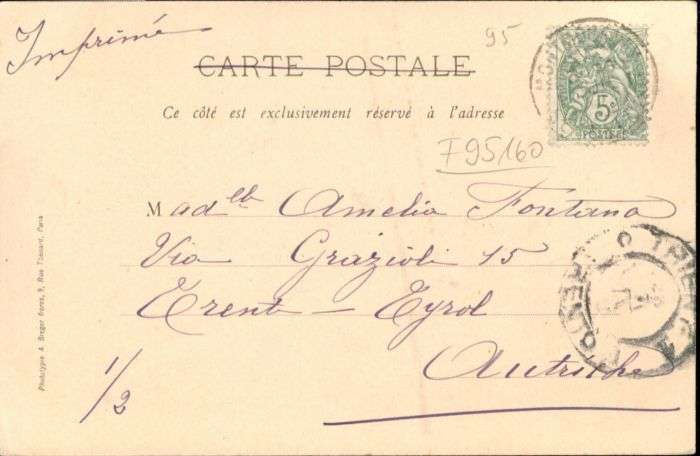 Imprimé
95
CARTE POSTALE
Ce côté est exclusivement réservé à l'adresse
5c
POSTES
F95160
Madlle Amelia Fontana
Via Grazioli 15
Trent - Tyrol
Autriche
1/2
Phototypie A. Breger Frères, 9, Rue Thénard, Paris